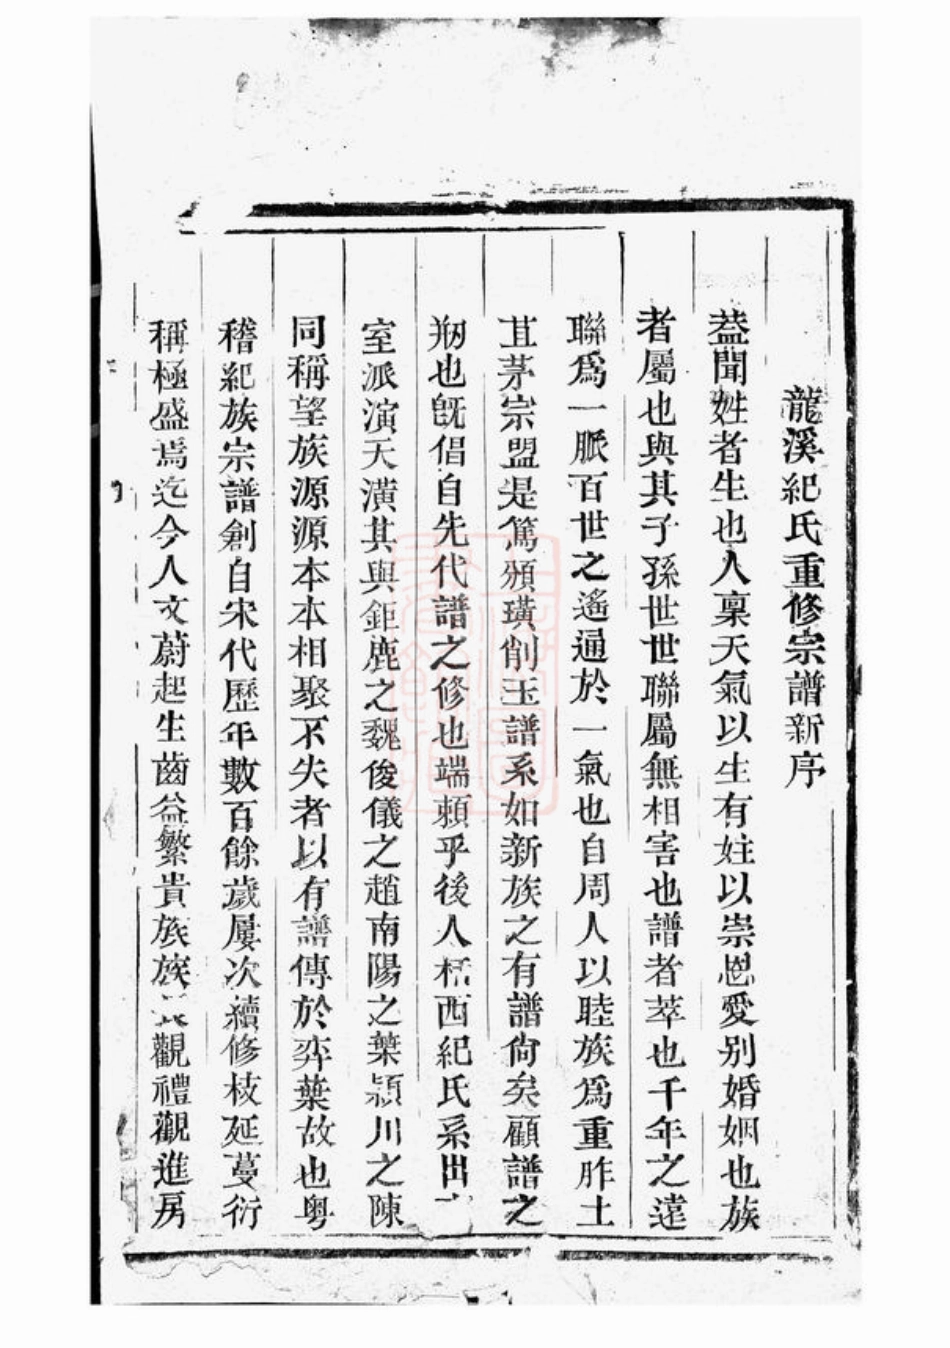 龍溪紀氏重修宗譜新序
葢聞姓者生也人稟天氣以生有姓以崇恩愛别婚姻也族
者屬也與其子孫世世聯屬無相害也譜者萃也千年之遠
聯爲一脈百世之遙通於一氣也自周人以睦族爲重胙土
苴茅宗盟是篤頒璜削玉譜系如新族之有譜尙矣顧譜之
剏也旣倡自先代譜之修也端頼乎後人栝西紀氏系出
室派演天潢其與鉅鹿之魏俊儀之趙南陽之葉潁川之陳
同稱望族源源本本相聚不失者以有譜傳於弈葉故也粤
稽紀族宗譜創自宋代歷年數百餘歲屢次續修枝延蔓衍
稱極盛焉迄今人文蔚起生齒益繁貴族族長觀禮觀進房